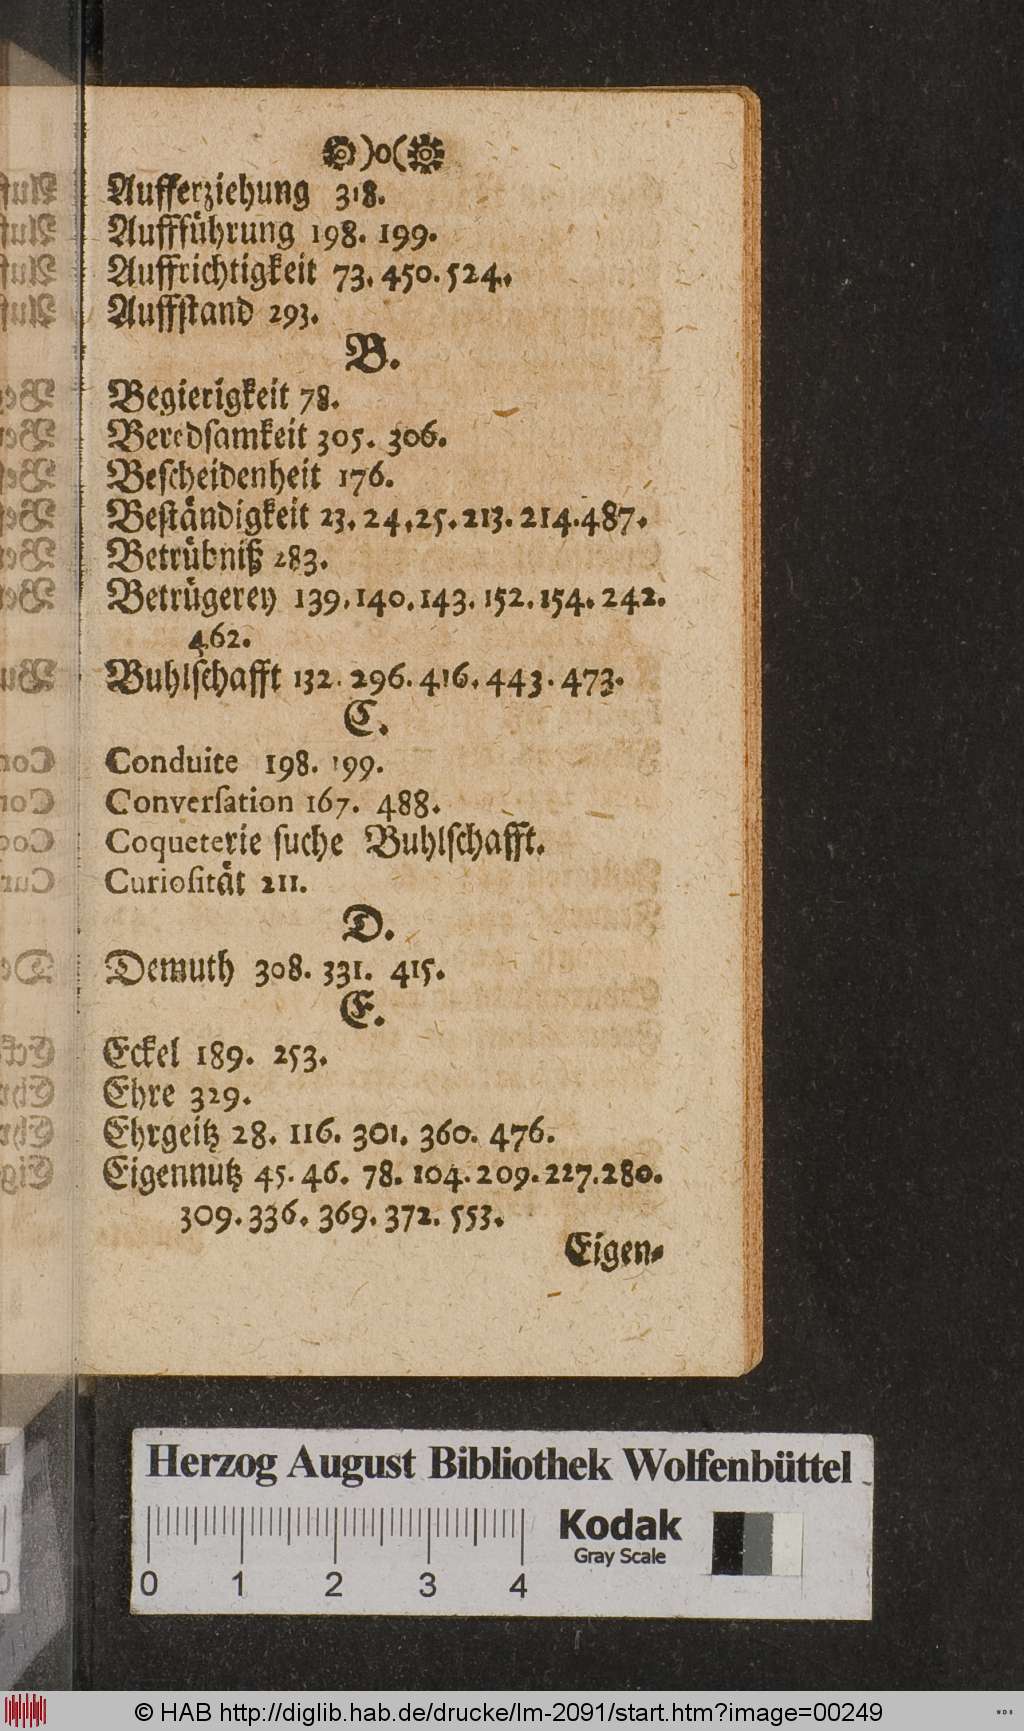 )o(
Aufferziehung 318.
Auffführung 198. 199.
Auffrichtigkeit 73. 450. 524.
Auffſtand 293.
B.
Begierigkeit 78.
Beredſamkeit 305. 306.
Beſcheidenheit 176.
Beſtändigkeit 23. 24. 25. 213. 214. 487.
Betrübniß 283.
Betrügerey 139. 140. 143. 152. 154. 242.
462.
Buhlſchafft 132. 296. 416. 443. 473.
C.
Conduite 198. 199.
Converſation 167. 488.
Coqueterie ſuche Buhlſchafft.
Curioſität 211.
D.
Demuth 308. 331. 415.
E.
Eckel 189. 253.
Ehre 329.
Ehrgeitz 28. 116. 301. 360. 476.
Eigennutz 45. 46. 78. 104. 209. 227. 280.
309. 336. 369. 372. 553.
Eigen-
Herzog August Bibliothek Wolfenbüttel
Kodak
Gray Scale
0 1 2 3 4
© HAB http://diglib.hab.de/drucke/lm-2091/start.htm?image=00249